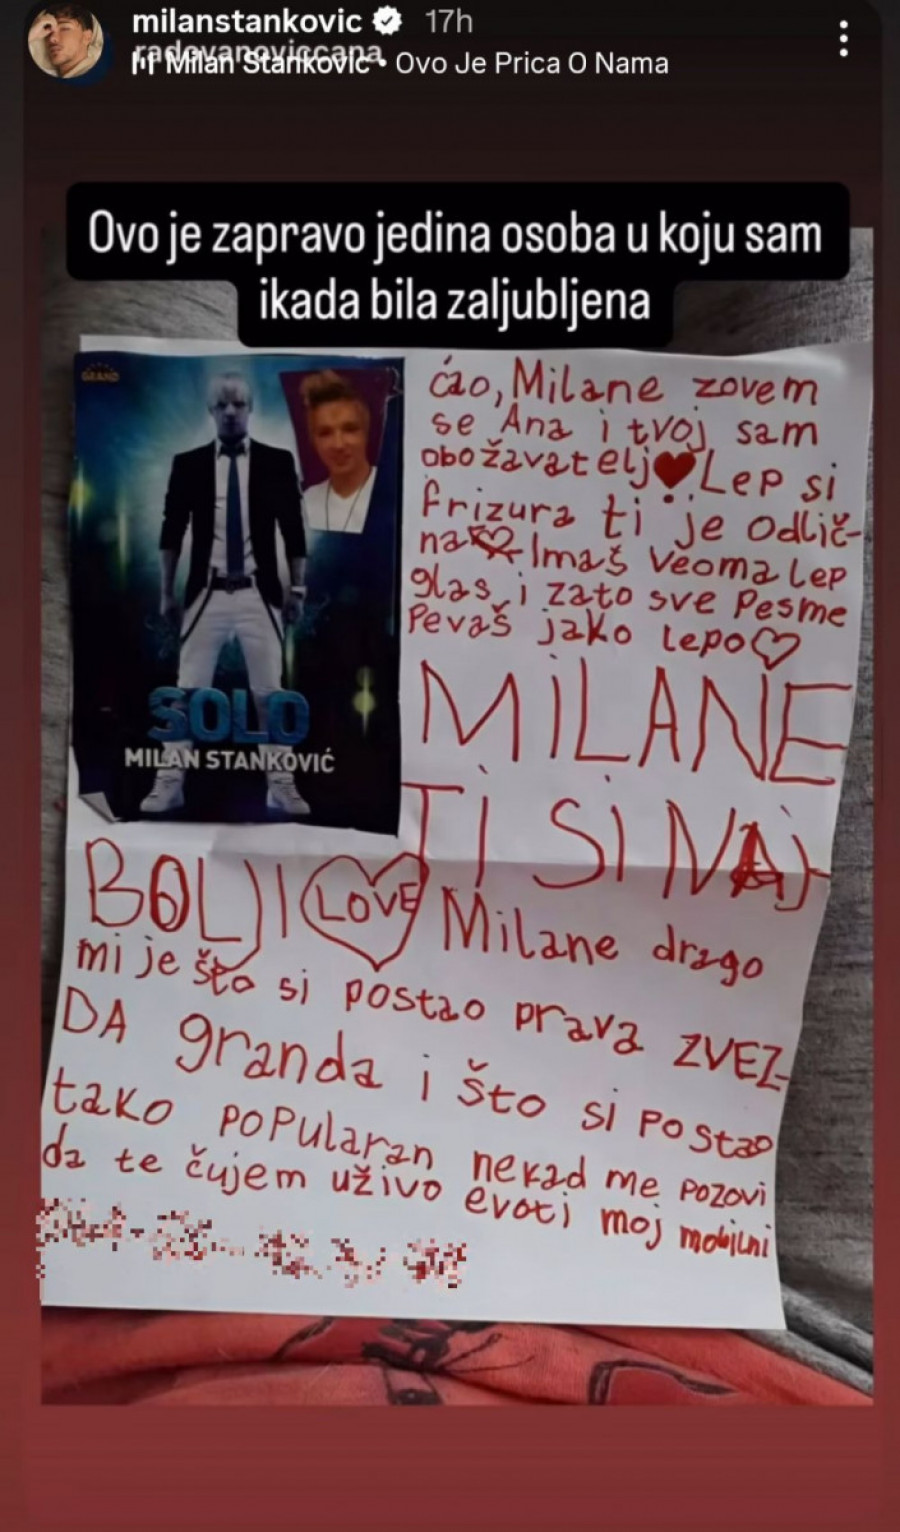 milanstankovic 17h
radovanoviccana
Milan Stanković • Ovo Je Prica O Nama
Ovo je zapravo jedina osoba u koju sam
ikada bila zaljubljena
GRAND
SOLO
MILAN STANKOVIĆ
ćao, Milane zovem
se Ana i tvoj sam
obožavatelj Lep si
frizura ti je odlič-
na Imaš veoma lep
glas i zato sve Pesme
Pevaš jako lepo
MiLANE
Ti Si NAj
BOLJI LOVE Milane drago
mi je što si postao prava ZVEZ-
DA granda i što si postao
tako popularan nekad me pozovi
da te čujem uživo evoti moj mobilni